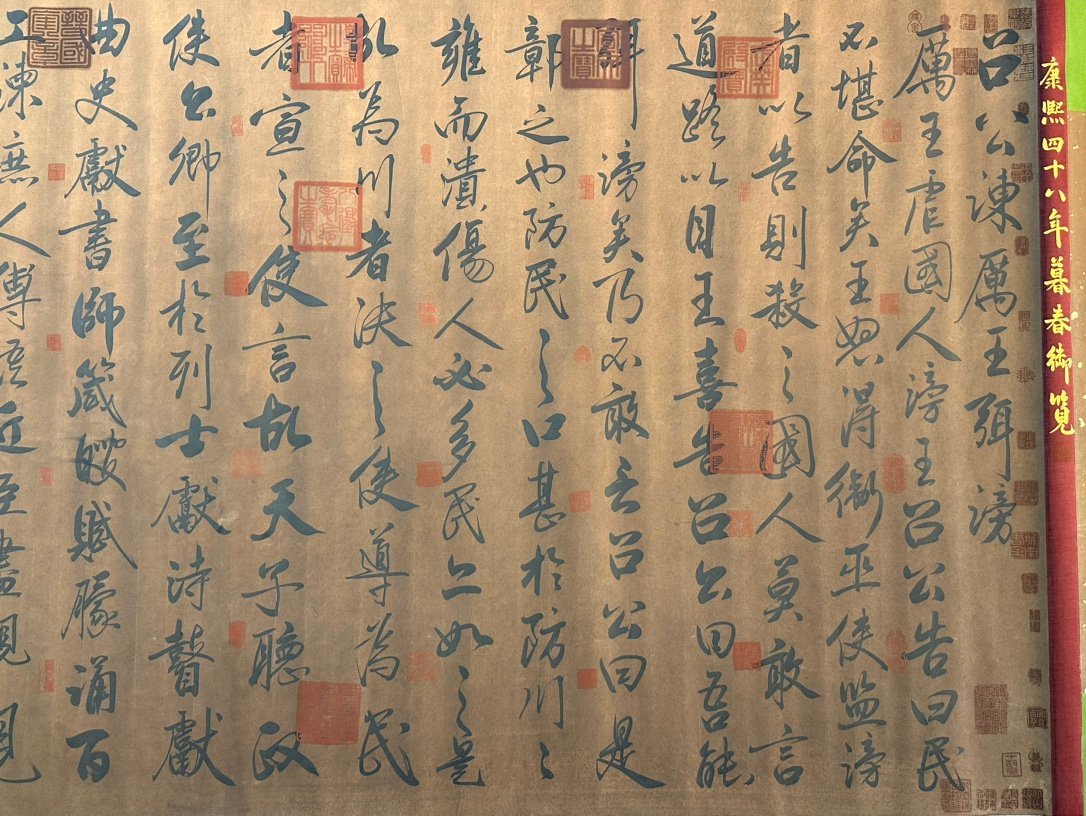 康熙四十八年暮春御覽
召公諫厲王弭謗
厲王虐國人謗王召公告曰民
不堪命矣王怒得衛巫使監謗
者以告則殺之國人莫敢言
道路以目王喜告召公曰吾能
弭謗矣乃不敢言召公曰是
鄣之也防民之口甚於防川〻
雍而潰傷人必多民亦如之是
故為川者決之使導為民
者宣之使言故天子聽政
使公卿至於列士獻詩瞽獻
曲史獻書師箴瞍賦矇誦百
工諫庶人傳語近臣盡規親